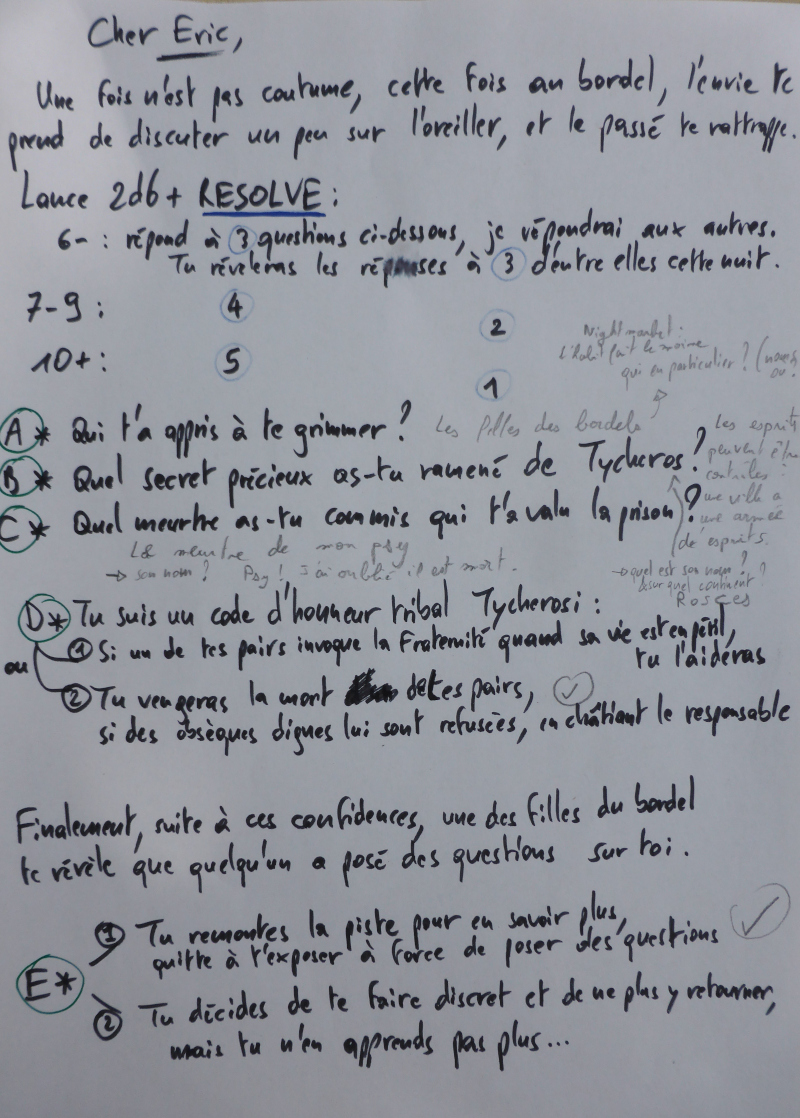 Cher Eric,
Une fois n'est pas coutume, cette fois au bordel, l'envie te
prend de discuter un peu sur l'oreiller, et le passé te rattrappe.
Lance 2d6 + RESOLVE :
6- : répond à 3 questions ci-dessous, je répondrai aux autres.
Tu révèleras les réponses à 3 d'entre elles cette nuit.
7-9 : 4 2
10+ : 5 1
Nightmarket.
L'habit fait le moine
qui en particulier ? (
A* Qui t'a appris à te grimmer ? Les filles des bordels
B* Quel secret précieux as-tu ramené de Tycheros ?
Les esprits
peuvent être
contrôlés :
une ville a
une armée
d'esprits.
C* Quel meurtre as-tu commis qui t'a valu la prison ?
Le meurtre de mon psy
→ son nom ? Psy ! J'ai oublié il est mort.
→ quel est son nom ?
& sur quel continent ?
D* Tu suis un code d'honneur tribal Tycherosi :
① Si un de tes pairs invoque la Fraternité quand sa vie est en péril,
tu l'aideras
ou
② Tu vengeras la mort de tes pairs, ✓
si des obsèques dignes lui sont refusées, en châtiant le responsable
Finalement, suite à ces confidences, une des filles du bordel
te révèle que quelqu'un a posé des questions sur toi.
E*
① Tu remontes la piste pour en savoir plus, ✓
quitte à t'exposer à force de poser des questions
② Tu décides de te faire discret et de ne plus y retourner,
mais tu n'en apprends pas plus...